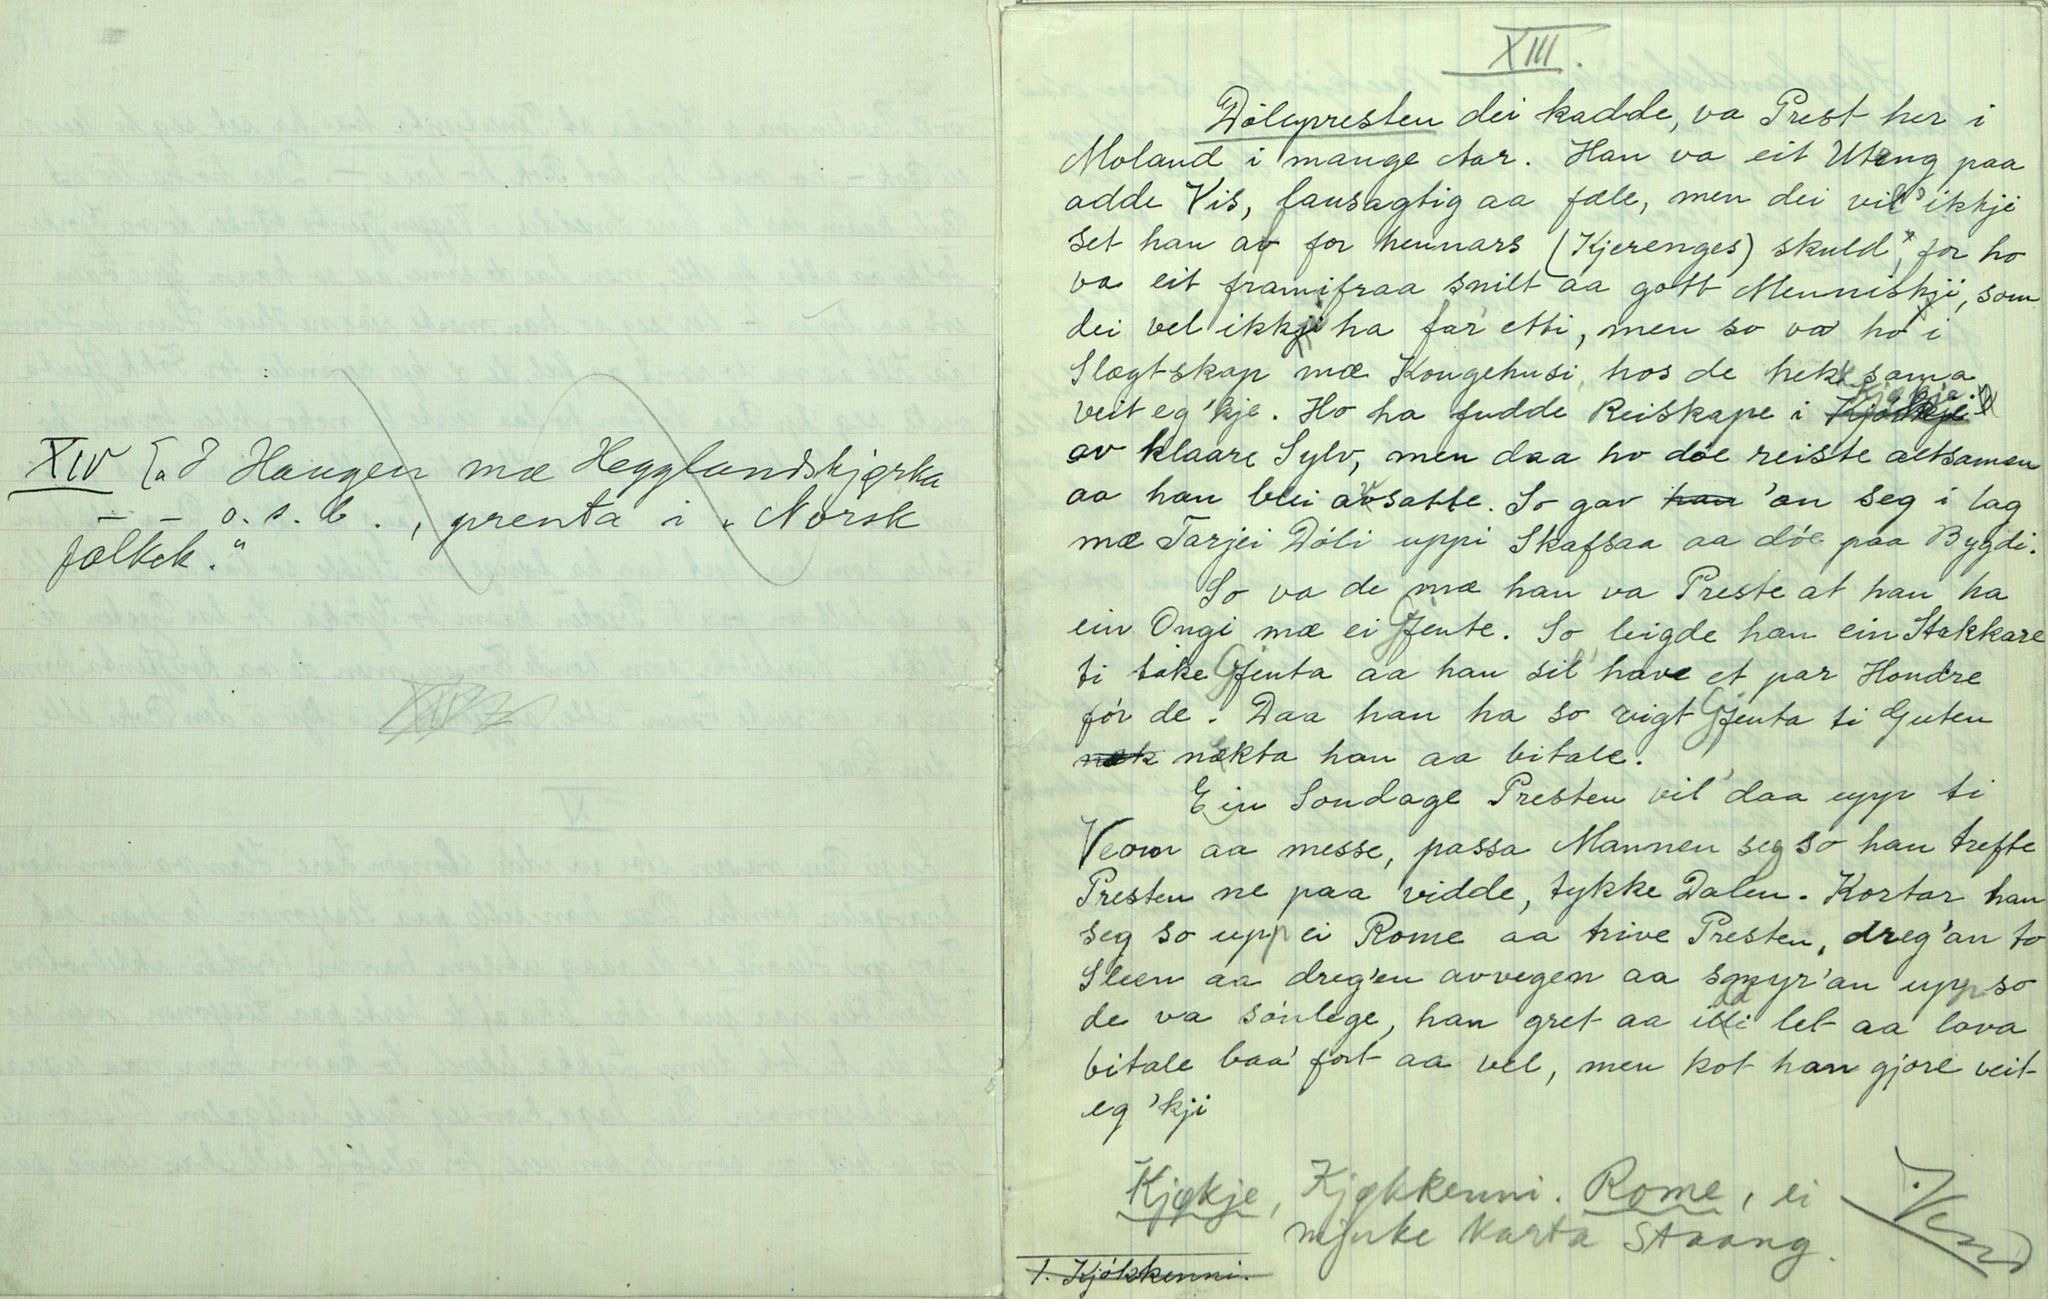 XIV [„I Haugen mæ Hegglandskjørka
— — o.s.b., prenta i „Norsk
folkek."
XIII.
Dólepresten dei kadde, va Prest her i
Moland i mange Aar. Han va eit Uteng paa
adde Vis, fausagtig aa fæle, men dei vil' ikkji
set han av for hennars (Kjerenges) skuld, for ho
va eit framifraa snilt aa gott Menniskji, som
dei vel ikkji ha far' etti, men so va ho i
Slægtskap mæ Kongehusi, hos de hek sama
veit eg 'kje. Ho ha fudde Reiskape i Kjøkje
av klaare Sylv, men daa ho døe reiste altsamen
aa han blei avsatte. So gav han 'an seg i lag
mæ Tarjei Dóli uppi Skafsaa aa døe paa Bygdi.
So va de mæ han va Preste at han ha
ein Ongi mæ ei Gjente. So leigde han ein Stakkare
ti take Gjenta aa han sil' have et par Hondre
fór de. Daa han ha so vigt Gjenta ti Guten
næk nekta han aa bitale.
Ein Sondage Presten vil' daa upp ti
Veom aa messe, passa Mannen seg so han trefte
Presten ne paa vidde, tykke Dalen. Kortar han
seg so upp ei Rome aa trive Presten, dreg'an to
Sleen aa dreg'en avvegen aa smyr'an upp so
de va sónlege, han gret aa illi let aa lova
bitale baa' fort aa vel, men kot han gjore veit
eg 'kji
Kjøkje, Kjøkkenni. Rome, ei
mjuke Karta Staang.
1. Kjókkenni.